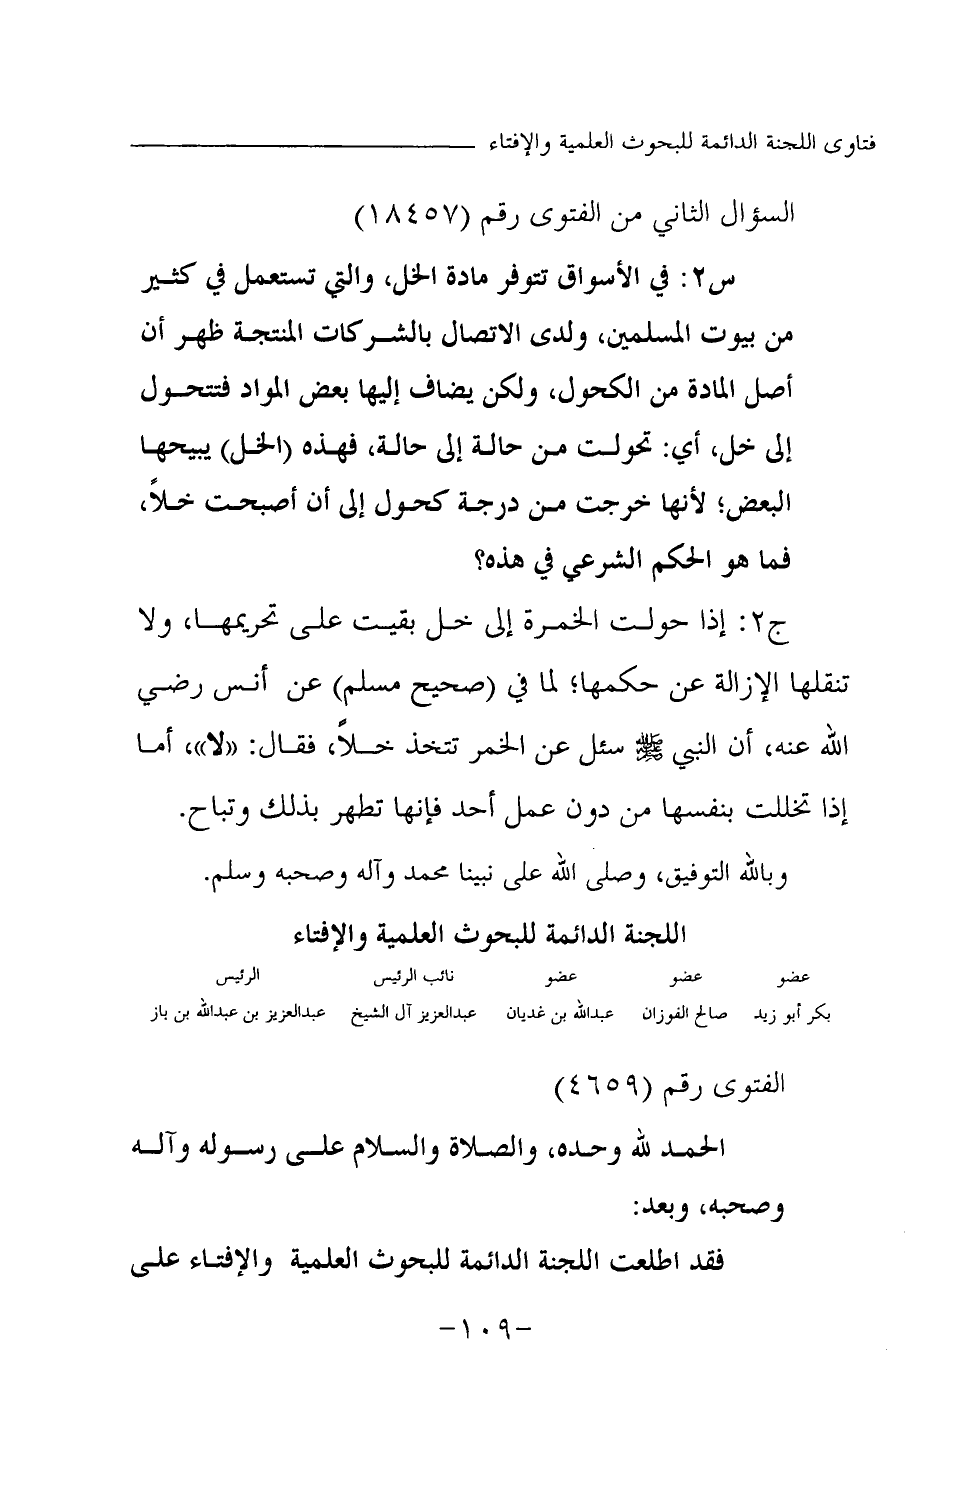 فتاوى اللجنة الدائمة للبحوث العلمية والإفتاء
السؤال الثاني من الفتوى رقم (١٨٤٥٧)
س٢: في الأسواق تتوفر مادة الخل، والتي تستعمل في كثير
من بيوت المسلمين، ولدى الاتصال بالشركات المنتجة ظهر أن
أصل المادة من الكحول، ولكن يضاف إليها بعض المواد فتتحول
إلى خل، أي: تحولت من حالة إلى حالة، فهذه (الخل) يبيحها
البعض؛ لأنها خرجت من درجة كحول إلى أن أصبحت خلاً،
فما هو الحكم الشرعي في هذه؟
ج٢: إذا حولت الخمرة إلى خل بقيت على تحريمها، ولا
تنقلها الإزالة عن حكمها؛ لما في (صحيح مسلم) عن أنس رضي
الله عنه، أن النبي ﷺ سئل عن الخمر تتخذ خلاً، فقال: «لا»، أما
إذا تخللت بنفسها من دون عمل أحد فإنها تطهر بذلك وتباح.
وبالله التوفيق، وصلى الله على نبينا محمد وآله وصحبه وسلم.
اللجنة الدائمة للبحوث العلمية والإفتاء
عضو عضو عضو نائب الرئيس الرئيس
بكر أبو زيد صالح الفوزان عبدالله بن غديان عبدالعزيز آل الشيخ عبدالعزيز بن عبدالله بن باز
الفتوى رقم (٤٦٥٩)
الحمد لله وحده، والصلاة والسلام على رسوله وآله
وصحبه، وبعد:
فقد اطلعت اللجنة الدائمة للبحوث العلمية والإفتاء على
-١٠٩-